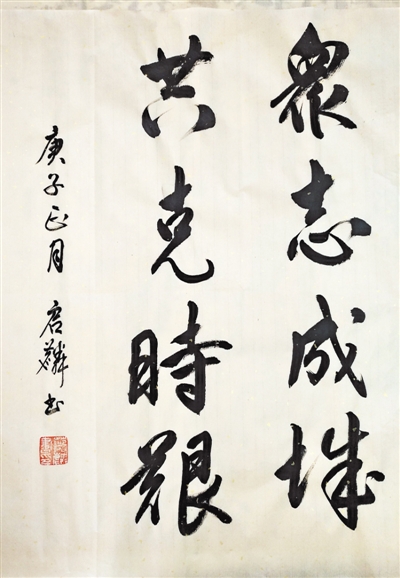 眾志成城
共克時艱
庚子正月 启麟书